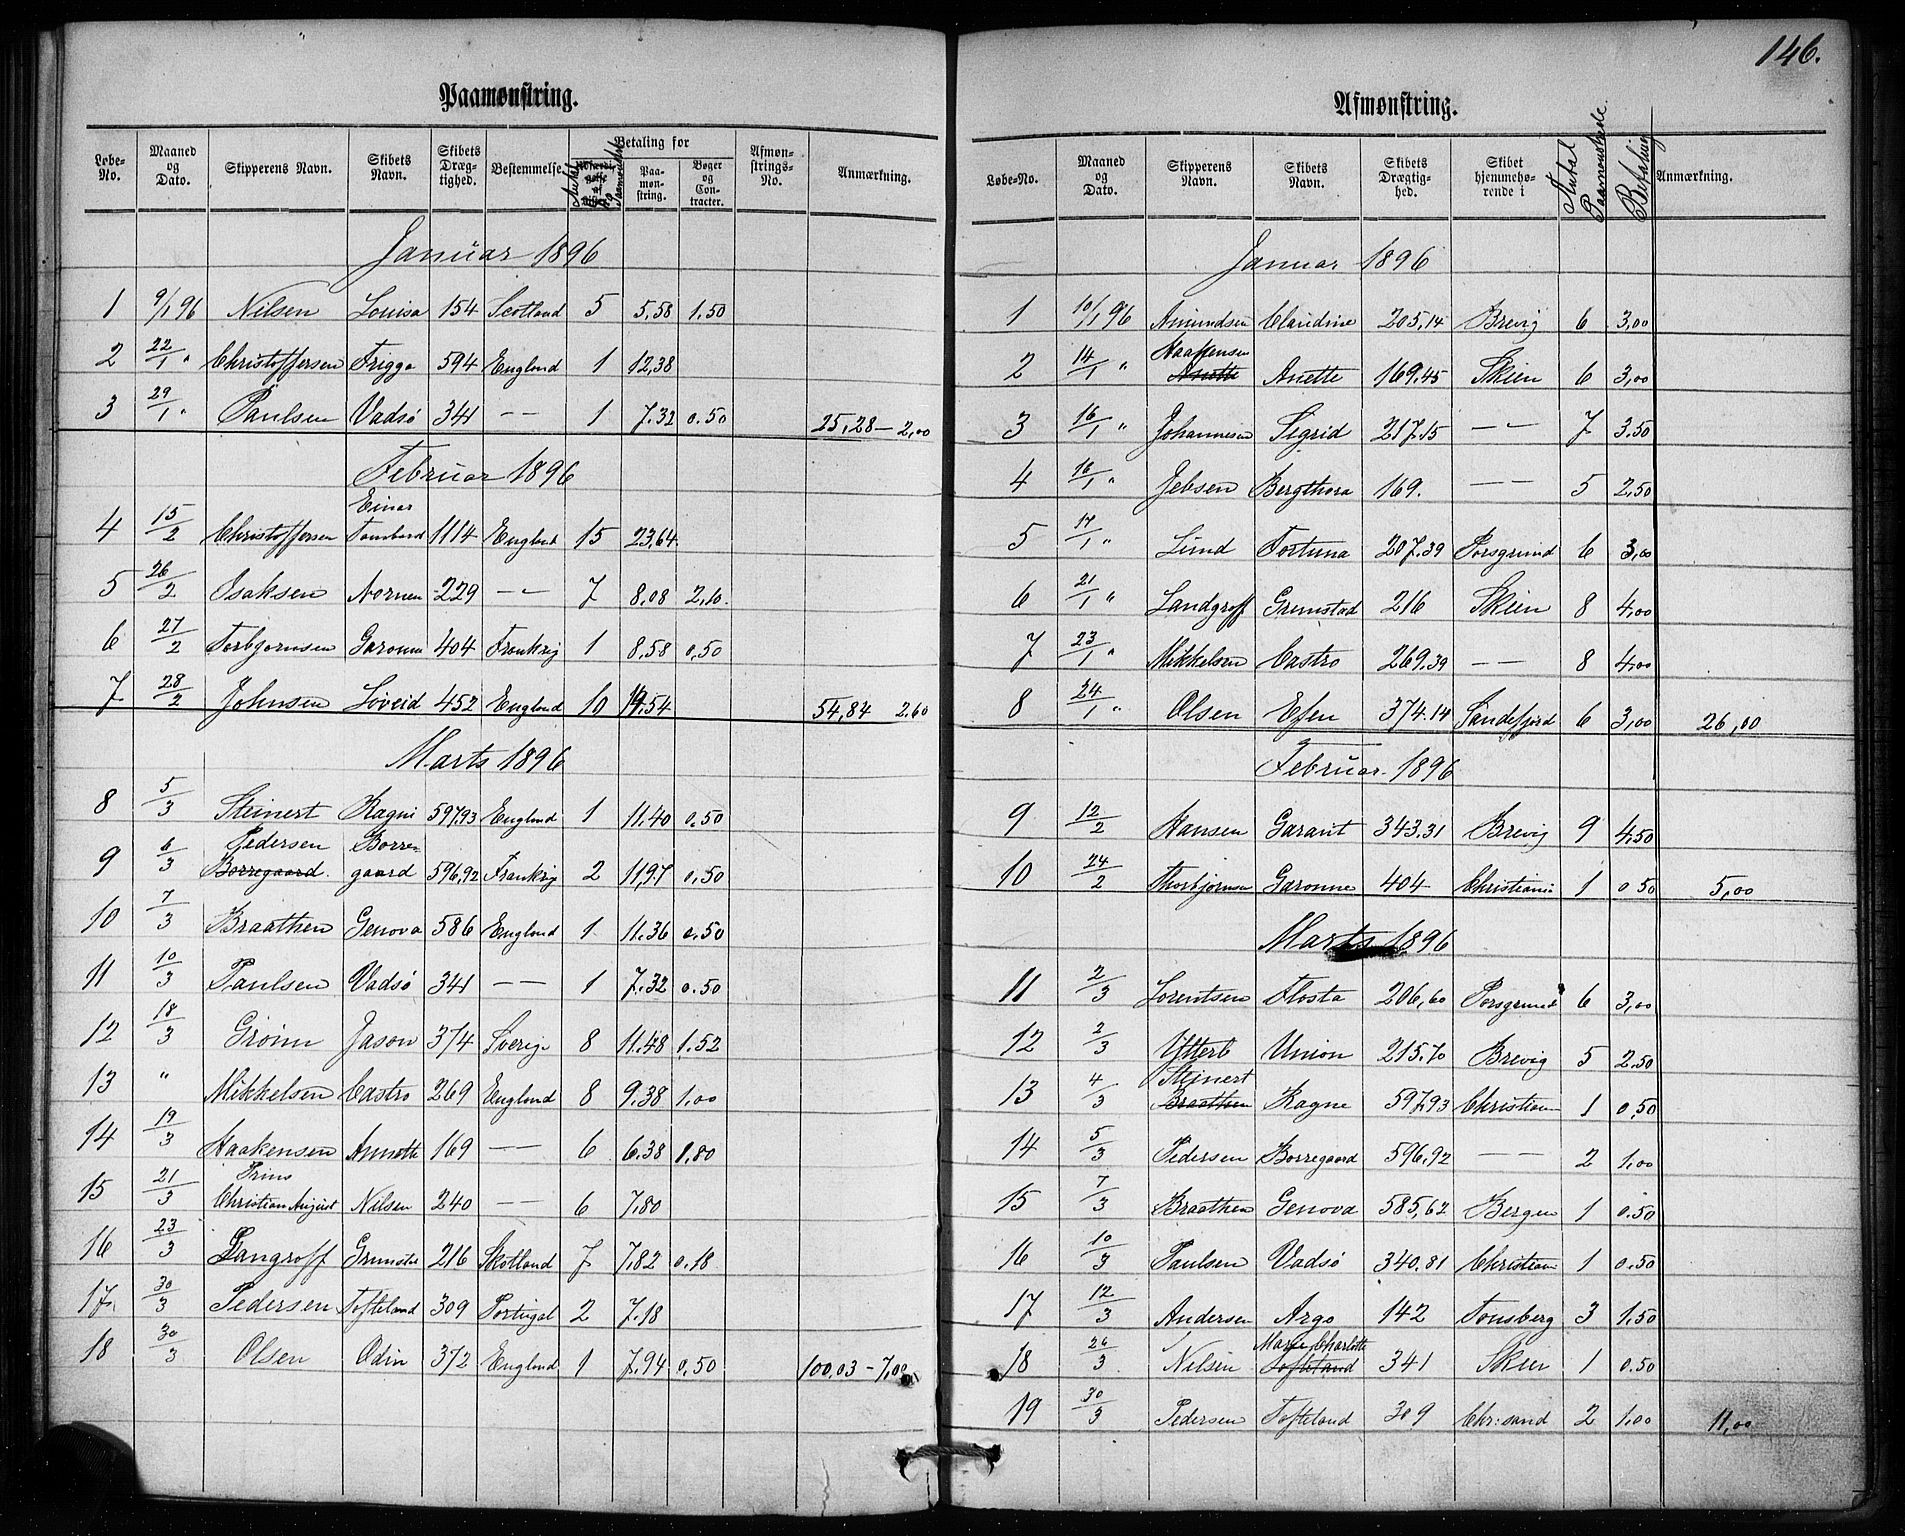 146.
Paamønstring.
Løbe-No. Maaned og Dato. Skipperens Navn. Skibets Navn. Skibets Drægtighed. Bestemmelse. Betaling for Paamønstring. Bøger og Contracter. Afmønstrings-No. Anmærkning.
Januar 1896
1 9/1 96 Nilsen Louisa 154 Scotland 5 5,58 1,50
2 22/1 " Christoffersen Frigga 594 England 1 12,38
3 29/1 " Paulsen Vadsø 341 - - 1 7.32 0.50 25,28 - 2,00
Februar 1896
4 15/2 Christoffersen Einar Tambard 1114 England 15 23,64
5 26/2 Isaksen Nornen 229 - - 7 8,08 2,10.
6 27/2 Torbjørnsen Garonne 404 Frankrig 1 8,58 0,50
7 28/2 Johnsen Løveid 452 England 10 14.54 54,84 2.60
Marts 1896
8 5/3 Steinert Ragni 597,93 England 1 11.40 0.50
9 6/3 Pedersen Borregaard. Borregaard 596,92 Frankrig 2 11,97 0,50
10 7/3 Braathen Genova 586 England 1 11.36 0.50
11 10/3 Paulsen Vadsø 341 - - 1 7.32 0.50
12 18/3 Grønn Jason 374 Sverige 8 11.48 1.52
13 " Mikkelsen Castro 269 England 8 9.38 1,00
14 19/3 Haakensen Annette 169 - - 6 6.38 1,80
15 21/3 Prins Christian August Nilsen 240 - - 6 7,80
16 23/3 Langroff Grimstad 216 Skotland 7 7,82 0,18
17 30/3 Pedersen Tofteland 309 Portugal 2 7.18
18 30/3 Olsen Odin 372 England 1 7.94 0,50 100,03 - 7,00
Afmønstring.
Løbe-No. Maaned og Dato. Skipperens Navn. Skibets Navn. Skibets Drægtighed. Skibet hjemmehørende i Antal Paamønstrede. Betaling Anmærkning.
Januar 1896
1 10/1 96 Amundsen Claridine 205,14 Brevig 6 3,00
2 14/1 " Haakensen Anette Anette 169.45 Skien 6 3,00
3 16/1 " Johannesen Sigrid 217.15 - - 7 3.50
4 16/1 " Jebsen Bergthora 169. - - 5 2,50
5 17/1 " Lund Fortuna 207.39 Porsgrund 6 3,00
6 21/1 " Landgroff Grimstad 216 Skien 8 4,00
7 23/1 " Mikkelsen Castro 269.39 - - 8 4,00
8 24/1 " Olsen Efen 374.14 Sandefjord 6 3,00 26,00
Februar 1896
9 12/2 Hansen Garant 343.31 Brevig 9 4,50
10 24/2 Thorbjørnsen Garonne 404 Christiania 1 0.50 5,00
Marts 1896
11 2/3 Lorentsen Flosta 206,60 Porsgrund 6 3,00
12 2/3 Ytterb Union 215.70 Brevig 5 2,50
13 4/3 Steinert Braathen Ragne 597,93 Christiania 1 0,50
14 5/3 Pedersen Borregaard 596,92 - - 2 1,00
15 7/3 Braathen Genova 585,62 Bergen 1 0.50
16 10/3 Paulsen Vadsø 340.81 Christiania 1 0.50
17 12/3 Andersen Argo 142 Tønsberg 3 1,50
18 26/3 Nilsen Marie Charlotte Tofteland 341 Skien 1 0.50
19 30/3 Pedersen Tofteland 309 Chr:sand 2 1,00 11,00